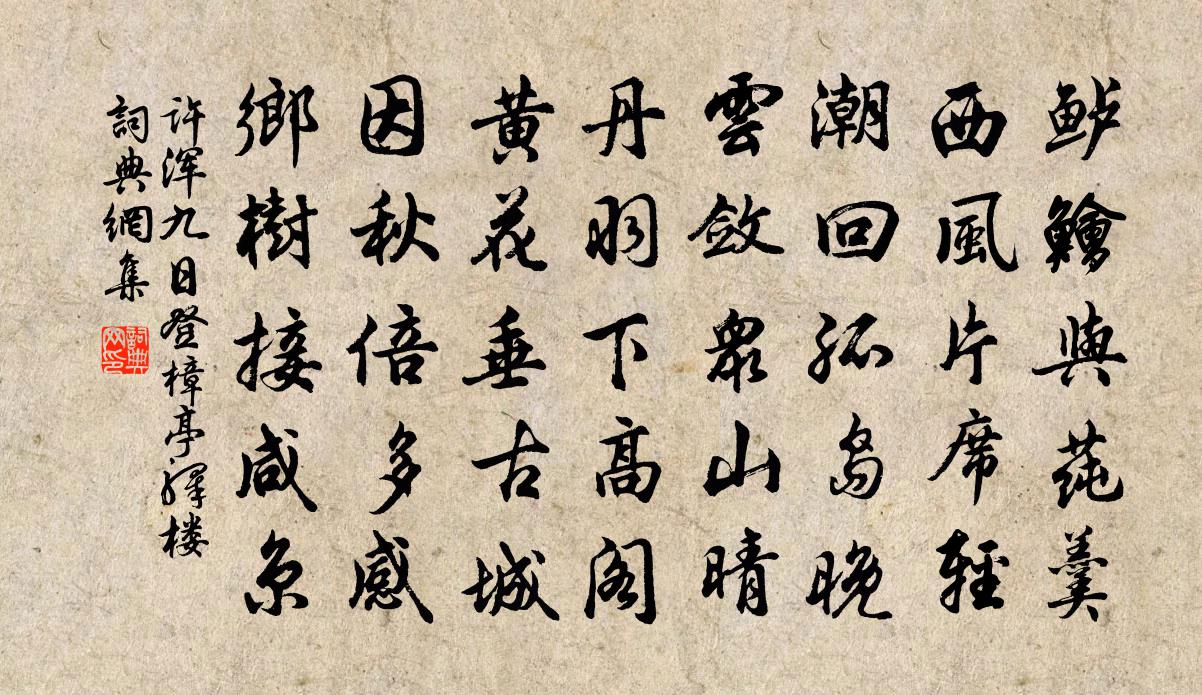 鲈鱠與莼羹
西風片席輕
潮回孤岛晚
雲斂眾山晴
丹羽下高阁
黄花垂古城
因秋倍多感
鄉樹接咸京
许浑九日登樟亭驛楼
詞典網集
詞典网印